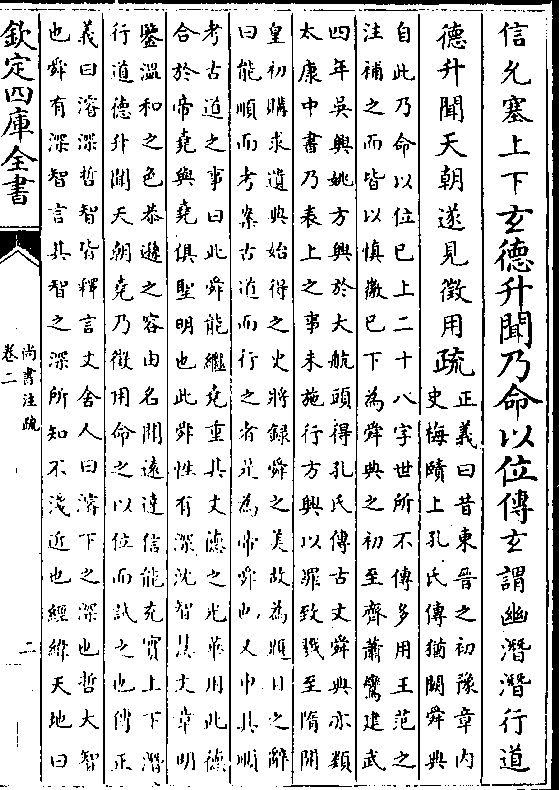 信允塞上下玄德升聞乃命以位傳玄謂幽潛潛行道
德升聞天朝遂見徵用疏
正義曰昔東晉之初豫章内
史梅賾上孔氏傳猶闕舜典
自此乃命以位已上二十八字世所不傳多用王范之
注補之而皆以慎徽已下為舜典之初至齊蕭鸞建武
四年吳興姚方興於大航頭得孔氏傳古文舜典亦類
太康中書乃表上之事未施行方興以罪致戮至隋開
皇初購求遺典始得之史將録舜之美故為題目之辭
曰能順而考案古道而行之者是為帝舜也又申其順
考古道之事曰此舜能繼堯重其文德之光華用此德
合於帝堯與堯俱聖明也此舜性有深沈智慧文章明
鑒溫和之色恭遜之容由名聞遠達信能充實上下潛
行道德升聞天朝堯乃徵用命之以位而試之也傳正
義曰濬深哲智皆釋言文舍人曰濬下之深也哲大智
也舜有深智言其智之深所知不淺近也經緯天地曰
欽定四庫全書
尚書注疏
卷二
二